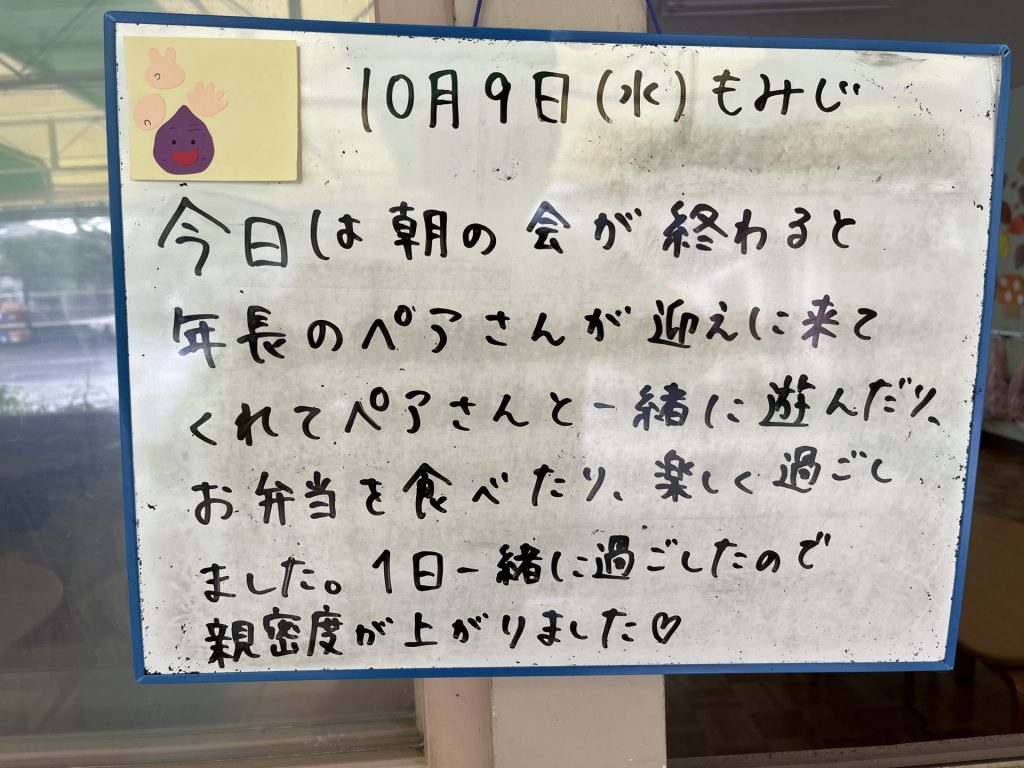 10月9日(水)もみじ
今日は朝の会が終わると
年長のペアさんが迎えに来て
くれてペアさんと一緒に遊んだり、
お弁当を食べたり、楽しく過ごし
ました。1日一緒に過ごしたので
親密度が上がりました♡